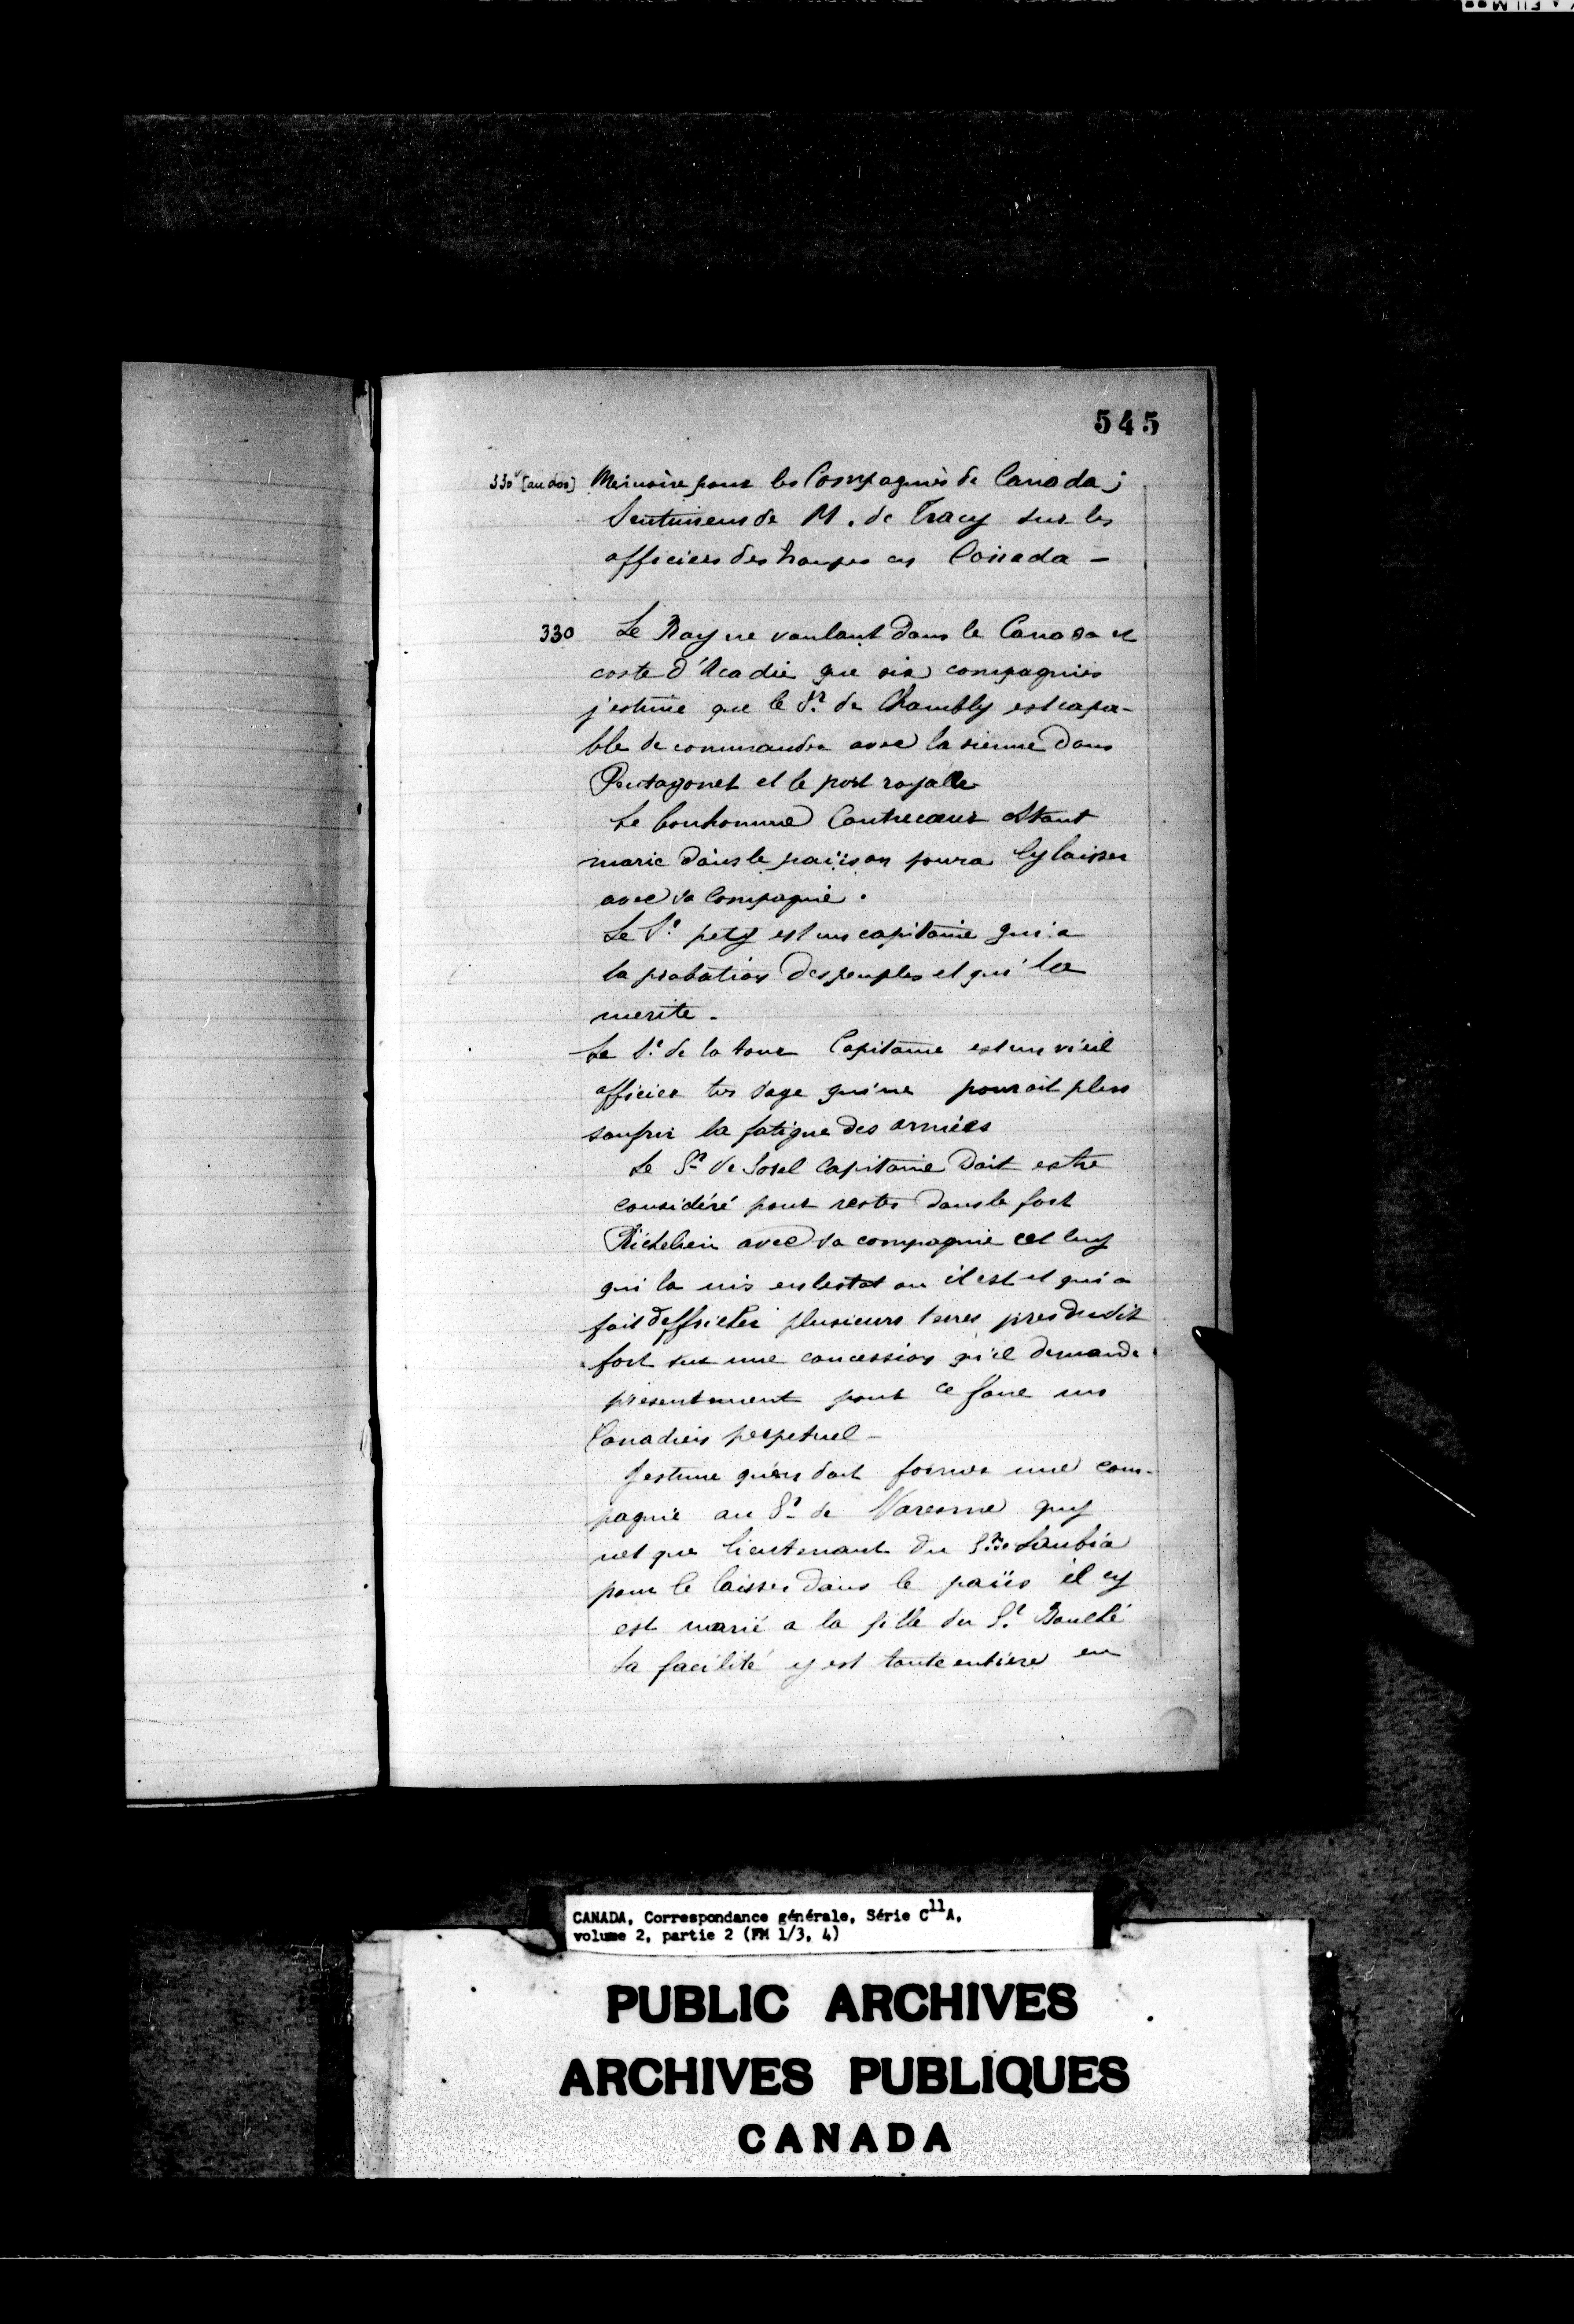 545
330v [au dos] Memoire pour les Compagnies de Canada;
Sentimens de M. de Tracy sur les
officiers des troupes en Canada —
330 Le Roy ne voulant dans le Canada et
coste d'Acadie que six compagnies
j'estime que le Sr. de Chambly est capa-
ble de commander avec la sienne dans
Pentagonet et le port royalle
Le bonhomme Contrecœur estant
marié dans le païs on poura ly laisser
avec sa Compagnie.
Le Sr. pety est un capitaine qui a
la probation des peuples et qui la
merite.
Le Sr. de la tour Capitaine est un vieil
officier tres sage qui ne pouroit plus
soufrir la fatigue des armées
Le Sr. de Sorel Capitaine doit estre
considéré pour rester dans le fort
Richelieu avec sa compagnie cet luy
qui la mis en lestat ou il est et qui a
fait deffricher plusieurs terres pres dudit
fort sur une concession qu'il demande
presentement pour ce faire un
Canadien perpetuel —
J'estime qu'on doit former une com-
pagnie au Sr. de Varenne quy
net que lieutenant du Sr. de Loubia
pour le laisser dans le païis il y
est marié a la fille du Sr. Bouché
La facilité y est toute entiere en
CANADA, Correspondance générale, Série C11A,
volume 2, partie 2 (FM 1/3, 4)
PUBLIC ARCHIVES
ARCHIVES PUBLIQUES
CANADA